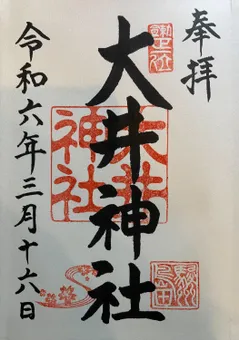 奉拝
大井神社
大井
神社
令和六年三月十六日